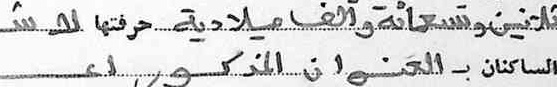 ثلاثين وتسعمائة والف ميلادية حرفتها لا ش
الساكنان بـ العنوان المذكور اع